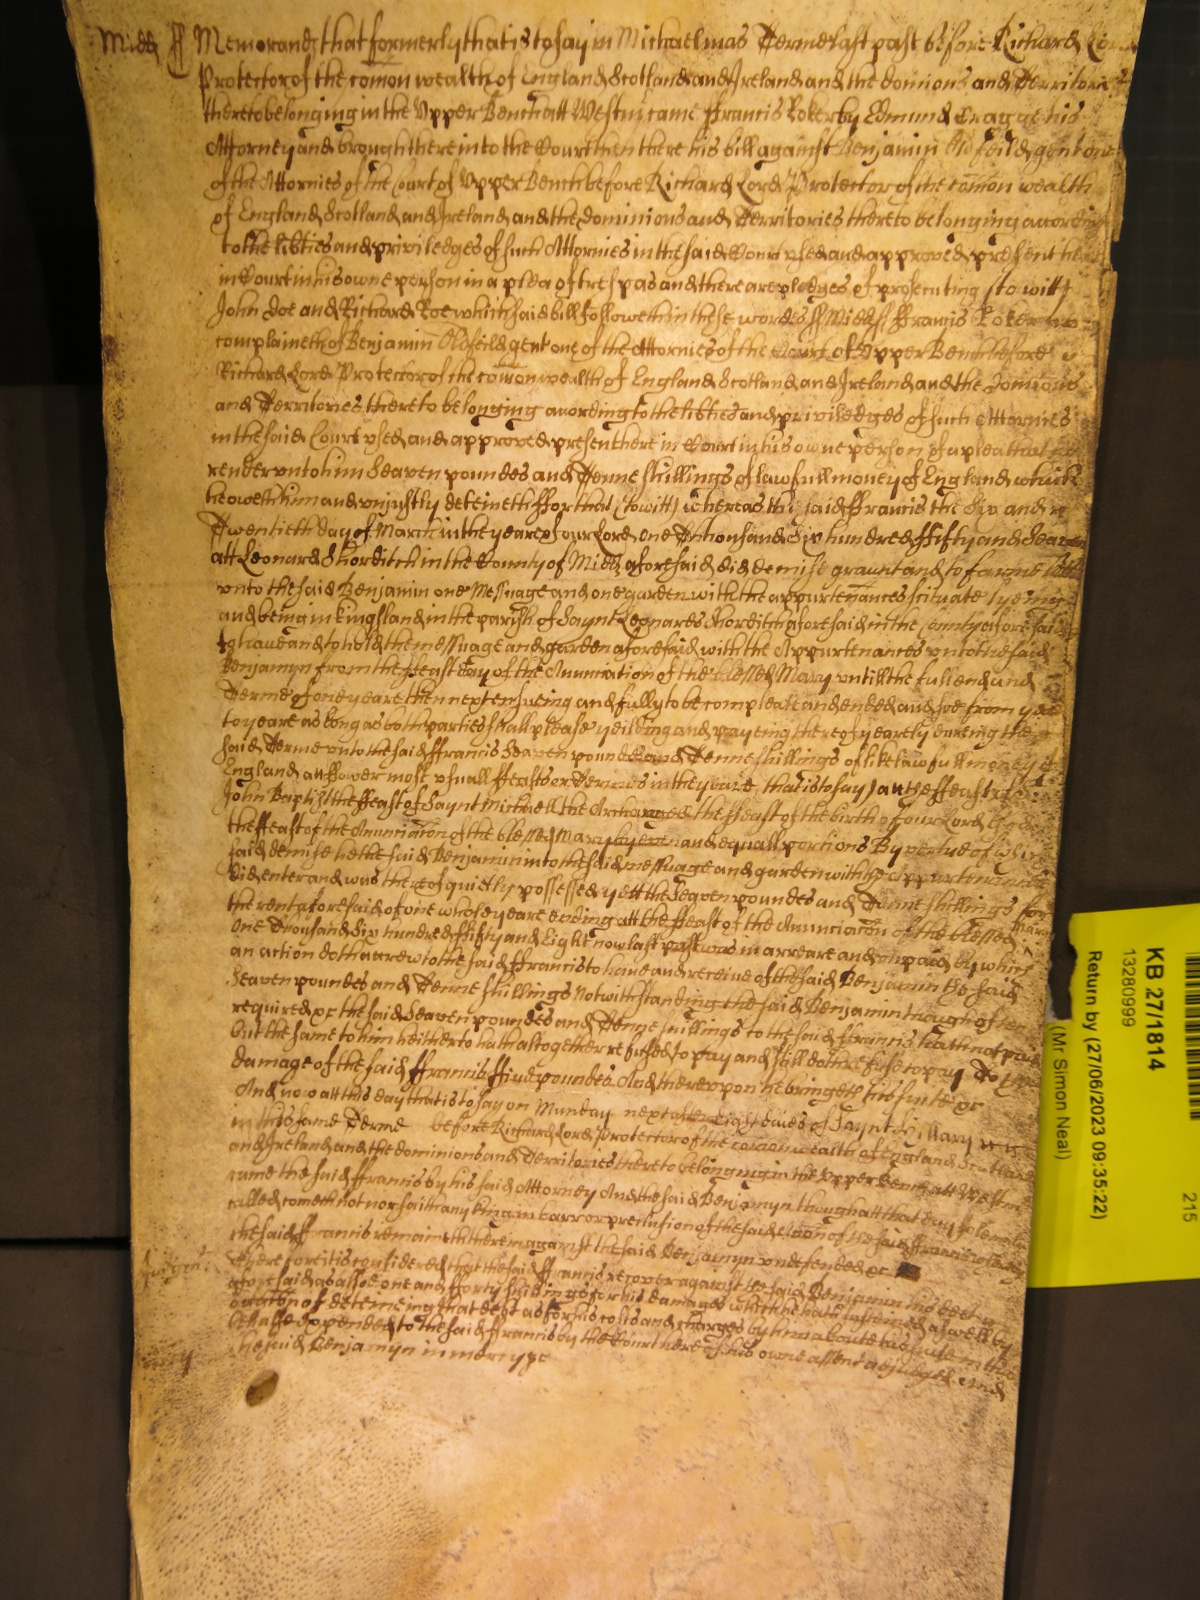 Midd ss Memorand that formerly that is to say in Michaelmas Terme last past before Richard Lord
Protector of the comon wealth of England Scotland and Ireland and the dominions and Territories
thereto belonging in the Upper Bench att Westm came Francis Rokerby Edmund Cragge his
Attorney and brought here into the Court then there his bill against Benjamin Oldfeild gent one
of the Attornies of the Court of Upper Bench before Richard Lord Protector of the comon wealth
of England Scotland and Ireland and the dominions and Territories thereto belonging according
to the libties and priviledges of such Attornies in the said Court used and approved present here
in Court in his owne person in a plea of trespas and there are pledges of prosecuting (to witt)
John Doe and Richard Roe which said bill followeth in these words ss Midd ss Francis
complaineth of Benjamin Oldfeild gent one of the Attornies of the Court of Upper Bench before
Richard Lord Protector of the comon wealth of England Scotland and Ireland and the Domions
and Territories thereto belonging according to the libties and priviledges of such Attornies
in the said Court used and approved present here in Court in his owne person of a plea that he
render unto him Seaven poundes and Tenne shillings of lawfull money of England which
he oweth him and uniustly deteineth For that (to witt) whereas the said Francis the Six and
Twentieth day of March in the yeare of our Lord one Thousand Six hundred Fifty and Seaven
att Leonard Shorditch in the County of Midd aforesaid did demise graunt and to farme lett
unto the said Benjamin one Messuage and one garden with the appurtenances scituate lyeing
and being in Kingsland in the parish of Saynt Leonards Shorditch aforesaid in the County aforesaid
to have and to hold the messuage and garden aforesaid with the Appurtenances unto the said
Benjamyn from the Feast day of the Anunciation of the blessed Mary untill the full end and
Terme of one yeare then next ensueing and fully to be compleate and ended and soe from yeare
to yeare as long as both parties shall please yeilding and payeing thereof yearely dureing the
said Terme unto the said Francis Seaven poundes and Tenne shillings of like lawfull money of
England att Fower most usuall Feasts or Termes in the yeare, that is to say att the Feast of S
John Baptist the Feast of Saynt Michaell the Archangell the Feast of the birth of our Lord God
the Feast of the Anunciation of the blessed Mary by even and equall portions By vertue of which
said demise he the said Benjamin into the said messuage and garden with the appurtenances
did enter and was thereof quietly possessed yett the Seaven poundes and Tenne shillings for
the rent aforesaid of one whole yeare ending att the Feast of the Anunciation of the blessed Mary
One Thousand Six hundred Fifty and Eight now last past was in arreare and unpaid by which
an action doth acrew to the said Francis to have and receive of the said Benjamin the said
Seaven poundes and Tenne shillings Notwithstanding the said Benjamin though often
required &c the said Seaven poundes and Tenne shillings to the said Francis hath not paid
but the same to him hitherto hath altogether refused to pay and still doth refuse to pay To the
damage of the said Francis Five poundes And thereupon he bringeth his suite &c
And now att this day that is to say on Munday next after Eight daies of Saynt Hillary
in this same Terme before Richard Lord Protector of the comon wealth of England Scotland
and Ireland and the dominions and Territories thereto belonging in the Upper Bench att Westm
came the said Francis by his said Attorney And the said Benjamyn though att that day solemnly
called cometh not nor saith any thing in barr or preclusion of the said action of the said Francis
the said Francis remaineth therein against the said Benjamyn undefended &c
Judgmt Therefore it is considered that the said Francis recover against the said Benjamin his debt
aforesaid as alsoe one and Forty shillings for his damages which he hath susteined aswell by
occation of deteineing that debt as for his costs and charges by him aboute his suite in this
behalfe expended to the said Francis by the Court here of his owne assent adiudged And
the said Benjamyn in mercy &c
KB 27/1814
13280999
Return by (27/06/2023 09:35:22)
(Mr Simon Neal)
215